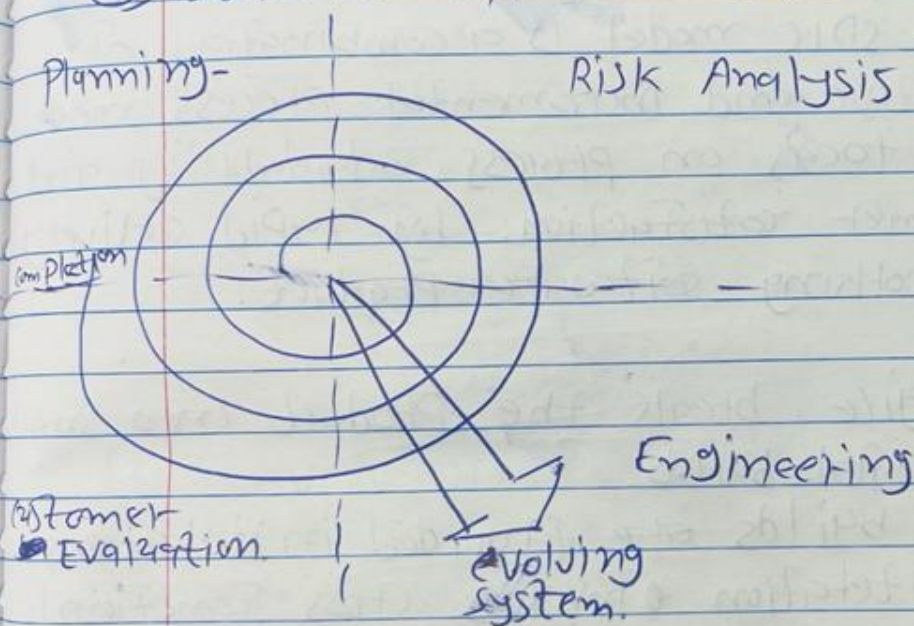 Planning-
Risk Analysis
Completion
Engineering
Customer
Evaluation.
evolving
system.